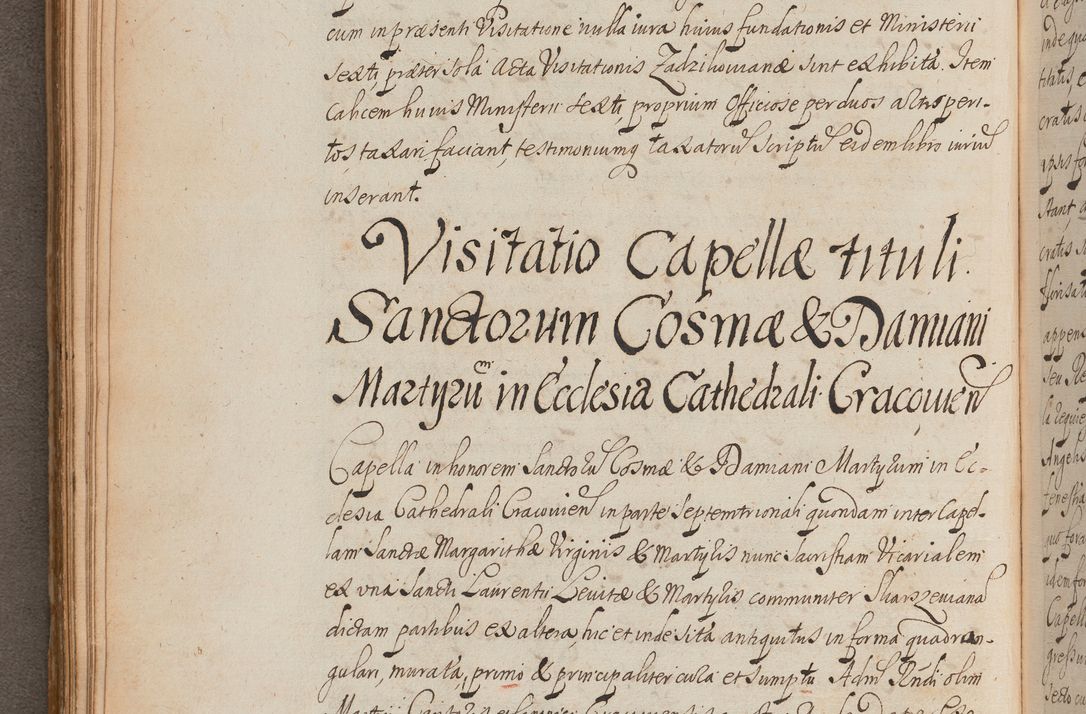 cum in præsenti Visitatione nulla iura huius fundationis et Ministerii
sexti, præter sola Acta Visitationis Zadzikowianæ sint exhibita. Item
Calicem huius Ministerii sexti, proprium Officiose per duos a se peri-
tos taxari faciant, testimoniumq taxatorũ Scriptũ eidem libro iuriũ
inserant.
Visitatio Capellæ tituli
Sanctorum Cosmæ & Damiani
Martyrũ in Ecclesia Cathedrali Cracouien
Capella in honorem Sanctorũ Cosmæ & Damiani Martyrum in Ec-
clesia Cathedrali Cracouien in parte Septemtrionali quondam inter Capel-
lam Sanctæ Margarithæ Virginis & Martyris nunc Sacristiam Vicarialem
ex una Sancti Laurentii Levitæ & Martyris communiter Skarszewiana
dictam partibus ex altera, hic et inde sita antiquitus in forma quadran-
gulari, murata, primo & principaliter culta et sumptu Adm Rndi olim